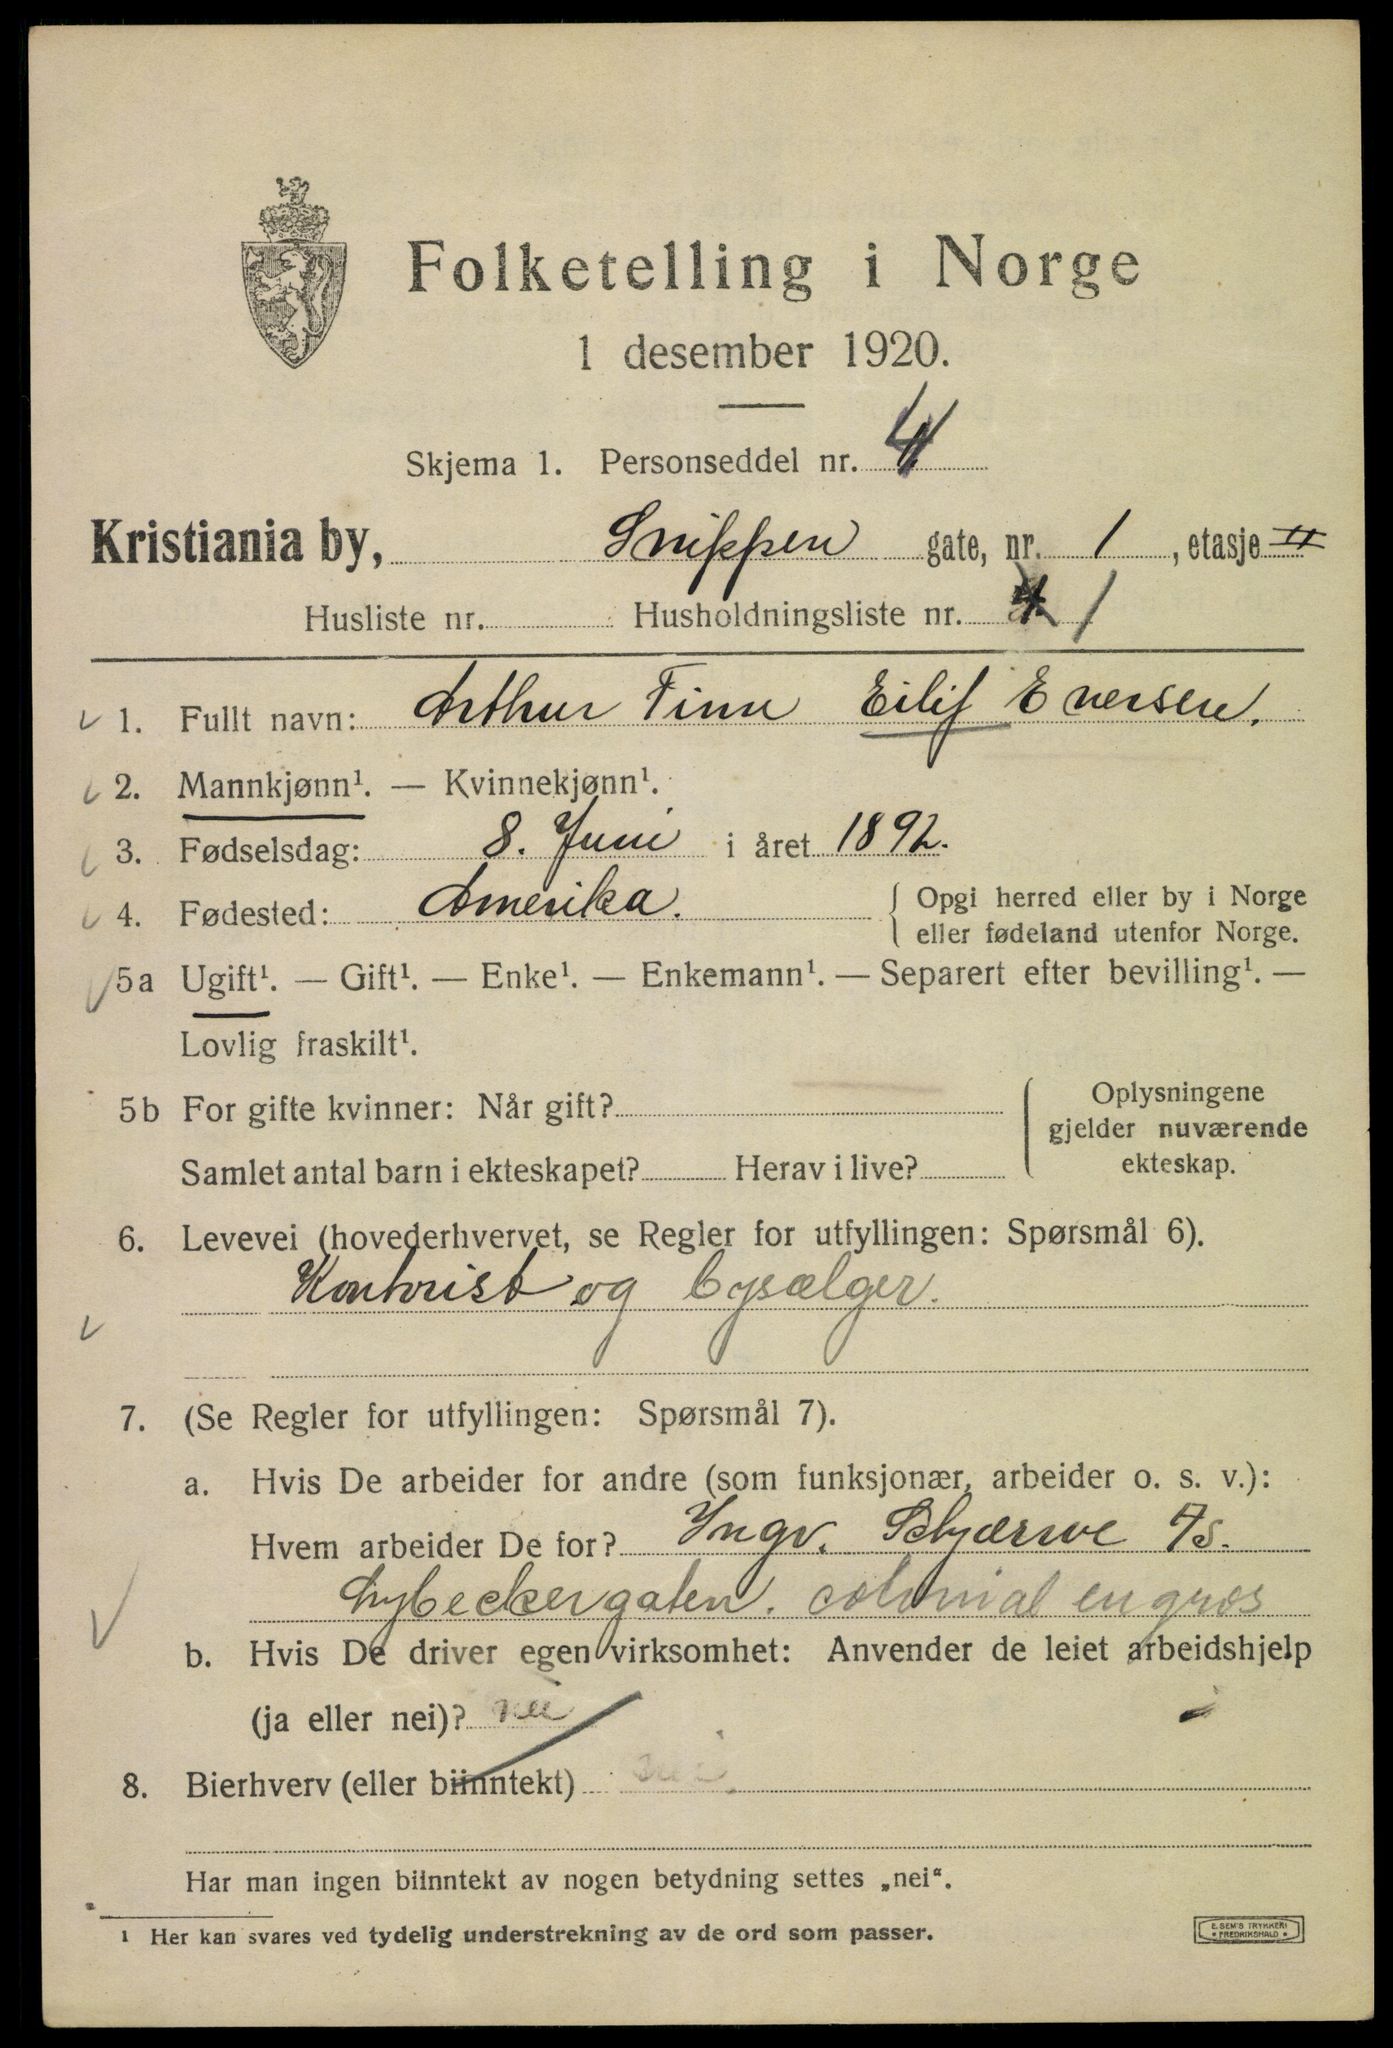 Folketelling i Norge
1 desember 1920.
Skjema 1. Personseddel nr. 4
Kristiania by, Snippen gate, nr. 1, etasje II
Husliste nr. Husholdningsliste nr. 1
1. Fullt navn: Arthur Finn Eilif Eversen.
2. Mannkjønn¹. — Kvinnekjønn¹.
3. Fødselsdag: 8. Juni i året 1892.
4. Fødested: Amerika. { Opgi herred eller by i Norge
eller fødeland utenfor Norge.
5a Ugift¹. — Gift¹. — Enke¹. — Enkemann¹. — Separert efter bevilling¹. —
Lovlig fraskilt¹.
5b For gifte kvinner: Når gift? { Oplysningene
gjelder nuværende
ekteskap.
Samlet antal barn i ekteskapet? Herav i live?
6. Levevei (hovederhvervet, se Regler for utfyllingen: Spørsmål 6).
Kontorist og bysælger.
7. (Se Regler for utfyllingen: Spørsmål 7).
a. Hvis De arbeider for andre (som funksjonær, arbeider o. s. v.):
Hvem arbeider De for? Ingv. As.
Lybeckergaten. colonial en gros
b. Hvis De driver egen virksomhet: Anvender de leiet arbeidshjelp
(ja eller nei)? nei
8. Bierhverv (eller biinntekt) nei.
Har man ingen biinntekt av nogen betydning settes „nei“.
¹ Her kan svares ved tydelig understrekning av de ord som passer.
E. SEM'S TRYKKERI
* FREDRIKSHALD *